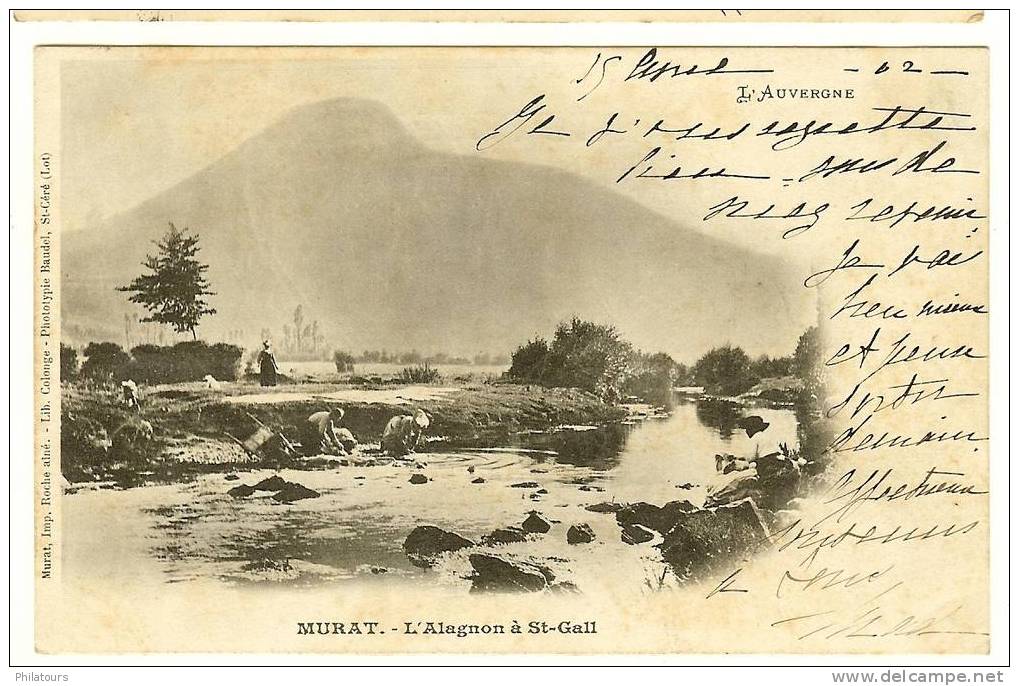 15 Avril - 02 -
L'AUVERGNE
Je n'ous regrette
bien
pas revenir
Je vais
bien mieux
et pense
sortir
demain
Affectueux
souvenirs
à
Murat, Imp. Roche aîné. - Lib. Colonge - Phototypie Baudel, St-Céré (Lot)
MURAT. - L'Alagnon à St-Gall
Philatours
www.delcampe.net